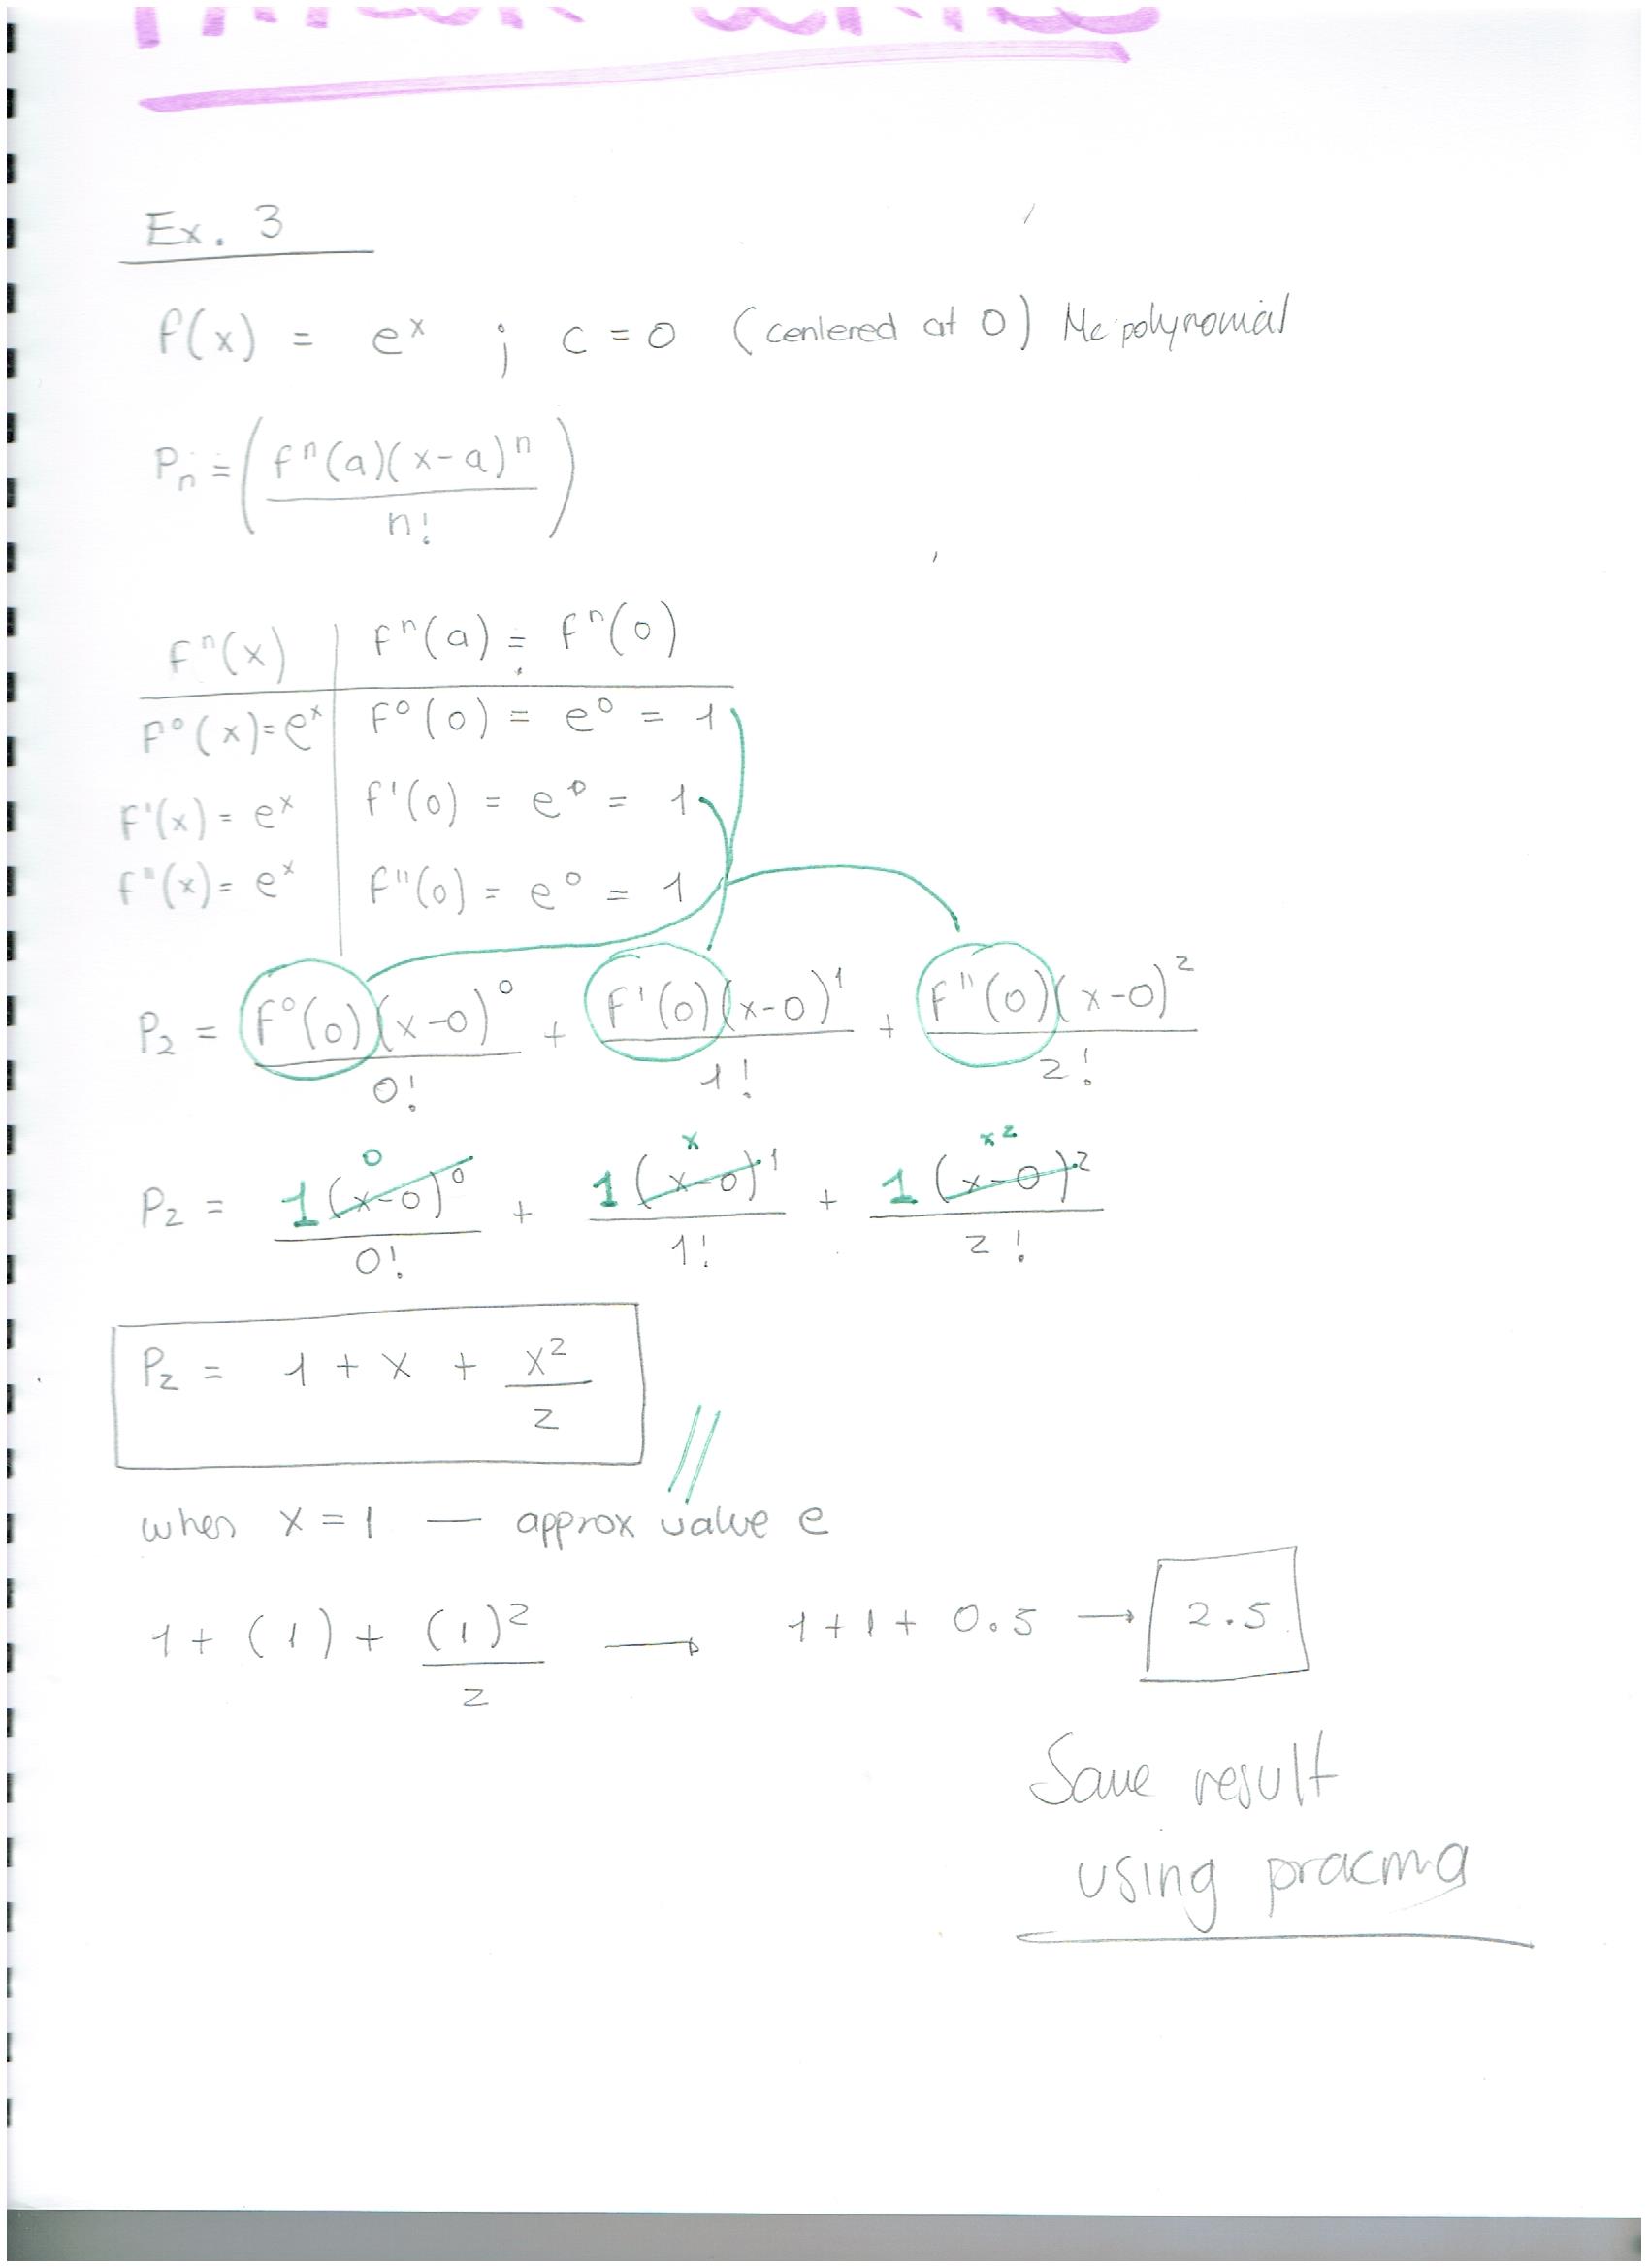 Ex. 3
f(x) = eˣ ; c = 0 (centered at 0) Mc polynomial
Pₙ = ( fⁿ(a)(x-a)ⁿ / n! )
Fⁿ(x) | Fⁿ(a) = Fⁿ(0)
F⁰(x) = eˣ | F⁰(0) = e⁰ = 1
F'(x) = eˣ | f'(0) = e⁰ = 1
F"(x) = eˣ | F"(0) = e⁰ = 1
P₂ = F⁰(0)(x-0)⁰ / 0! + F'(0)(x-0)¹ / 1! + F"(0)(x-0)² / 2!
0 x x²
P₂ = 1(x-0)⁰ / 0! + 1(x-0)¹ / 1! + 1(x-0)² / 2!
P₂ = 1 + x + x² / 2
when x = 1 — approx value e
1 + (1) + (1)² / 2 → 1 + 1 + 0.5 → 2.5
Same result
using pracma